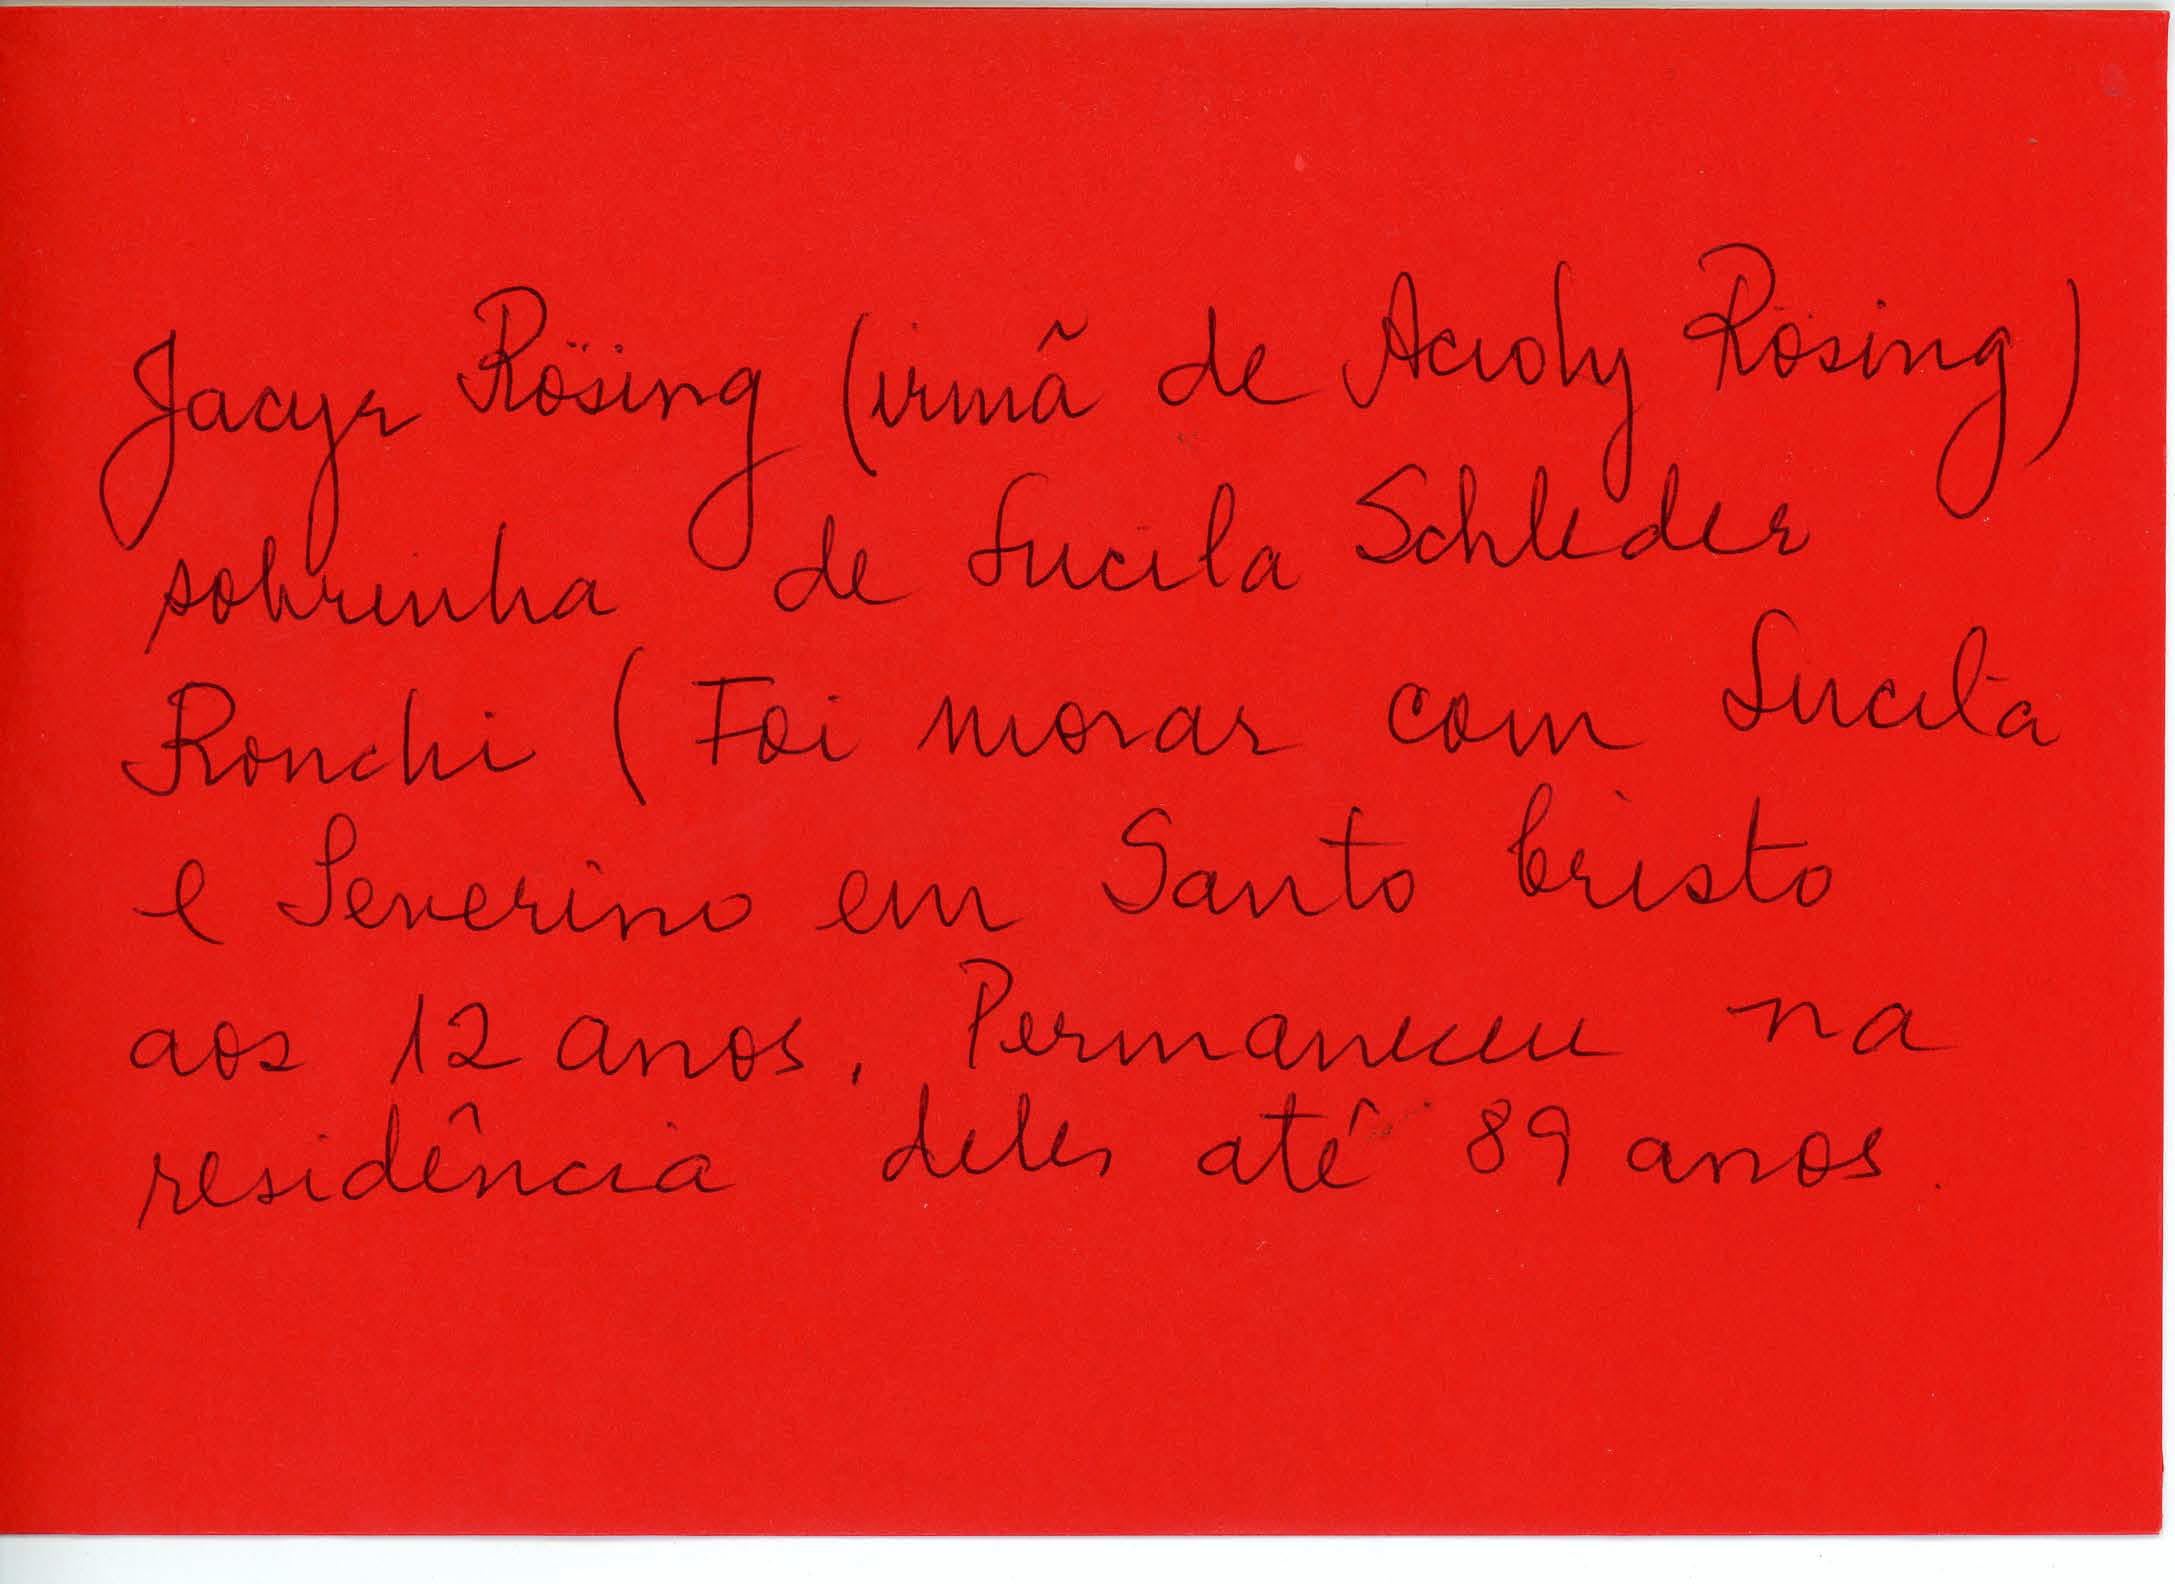 Jacyr Rösing (irmã de Acioly Rösing)
sobrinha de Lucila Schleder
Ronchi (Foi morar com Lucila
e Severino em Santo Cristo
aos 12 anos. Permaneceu na
residência deles até 89 anos.